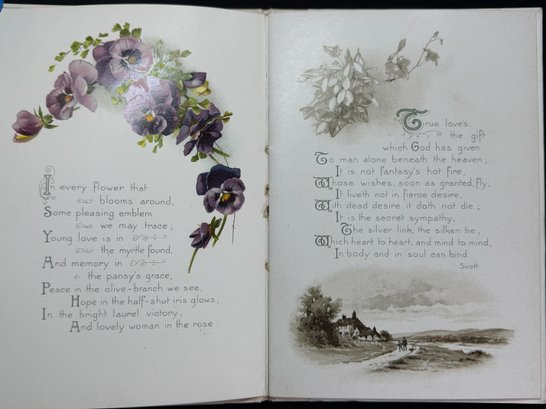 In every flower that
blooms around,
Some pleasing emblem
we may trace;
Young love is in
the myrtle found,
And memory in
the pansy's grace,
Peace in the olive-branch we see,
Hope in the half-shut iris glows,
In the bright laurel victory,
And lovely woman in the rose.
True love's
the gift
which God has given
To man alone beneath the heaven;
It is not fantasy's hot fire,
Whose wishes, soon as granted, fly;
It liveth not in fierce desire,
With dead desire it doth not die;
It is the secret sympathy,
The silver link, the silken tie,
Which heart to heart, and mind to mind,
In body and in soul can bind.
Scott.